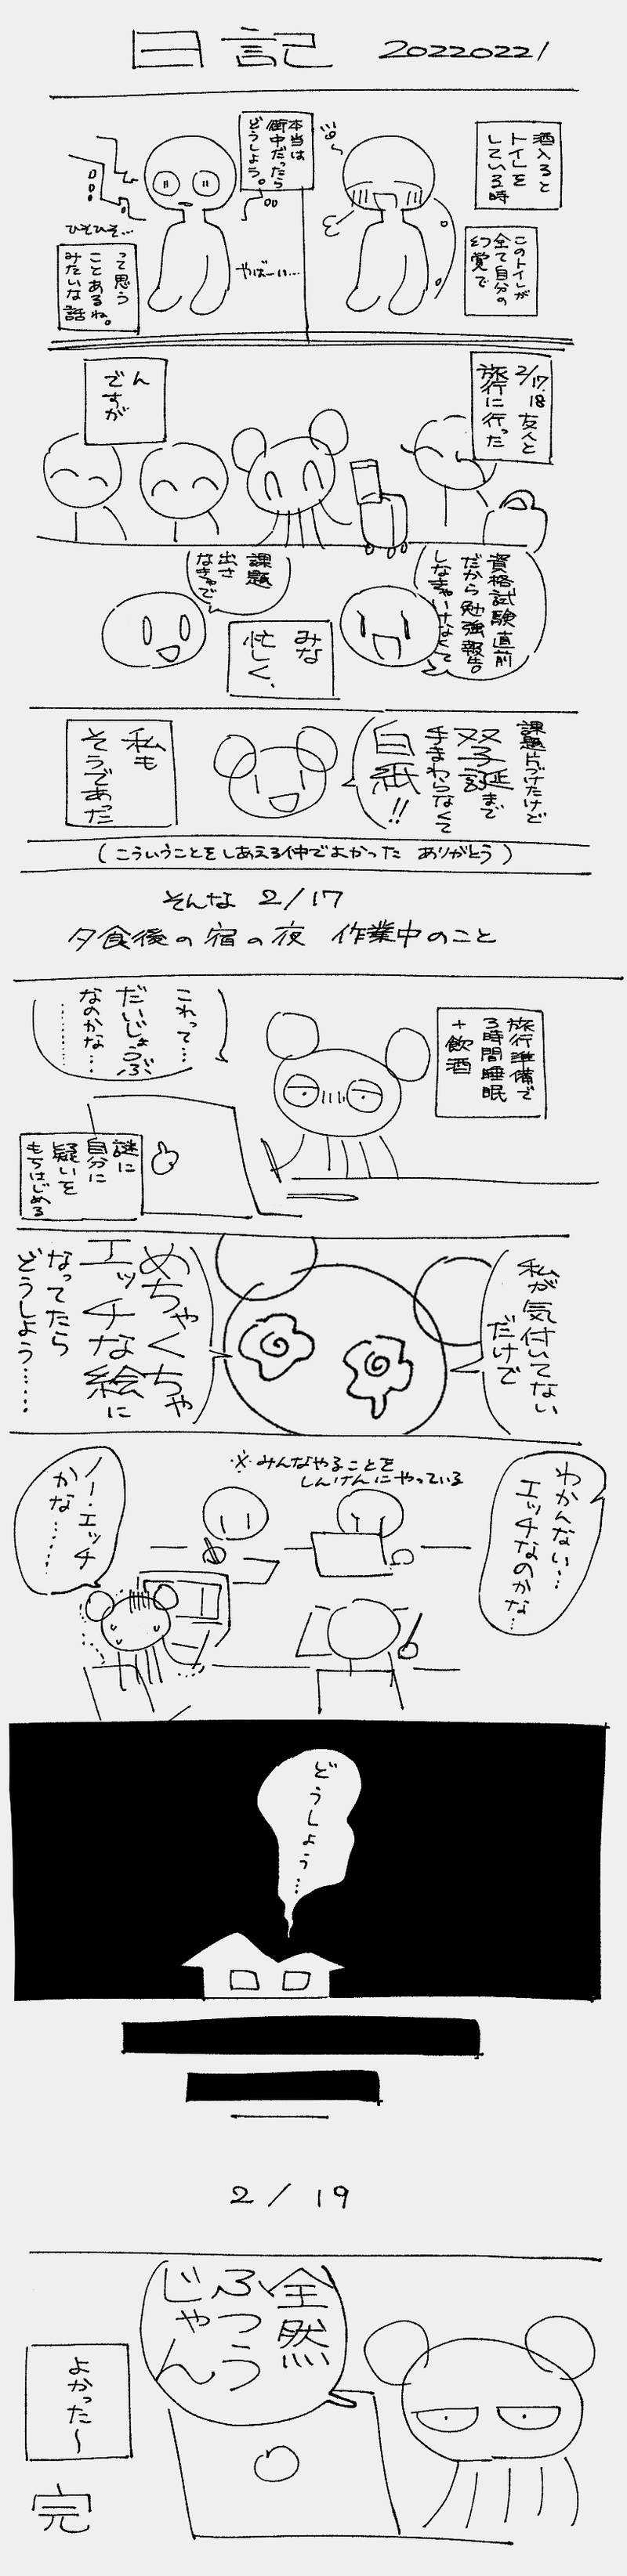 日記 20220221
酒入ると
トイレを
している時
このトイレが
全て自分の
幻覚で
本当は
街中だったら
どうしよう。
やばーい…
ひそひそ…
って思う
ことあるね。
みたいな話
2/17.18 友人と
旅行に行った
ん
ですが
資格試験直前
だから勉強報告
しなきゃいけなくて
課題
出さ
なきゃで
みな
忙しく、
課題片づけたけど
双子誕まで
手まわらなくて
白紙!!
私も
そうであった
(こういうことをしあえる仲でよかった ありがとう)
そんな 2/17
夕食後の宿の夜 作業中のこと
旅行準備で
3時間睡眠
+飲酒
これって…
だいじょうぶ
なのかな…
…………
謎に
自分に
疑いを
もちはじめる
私が気付いてない
だけで
めちゃくちゃ
エッチな絵に
なってたら
どうしよう……
わかんない…
エッチなのかな…
※みんなやることを
しんけんにやっている
ノー・エッチ
かな………
どうしよう…
2/19
全然
ふつう
じゃん
よかった〜
完